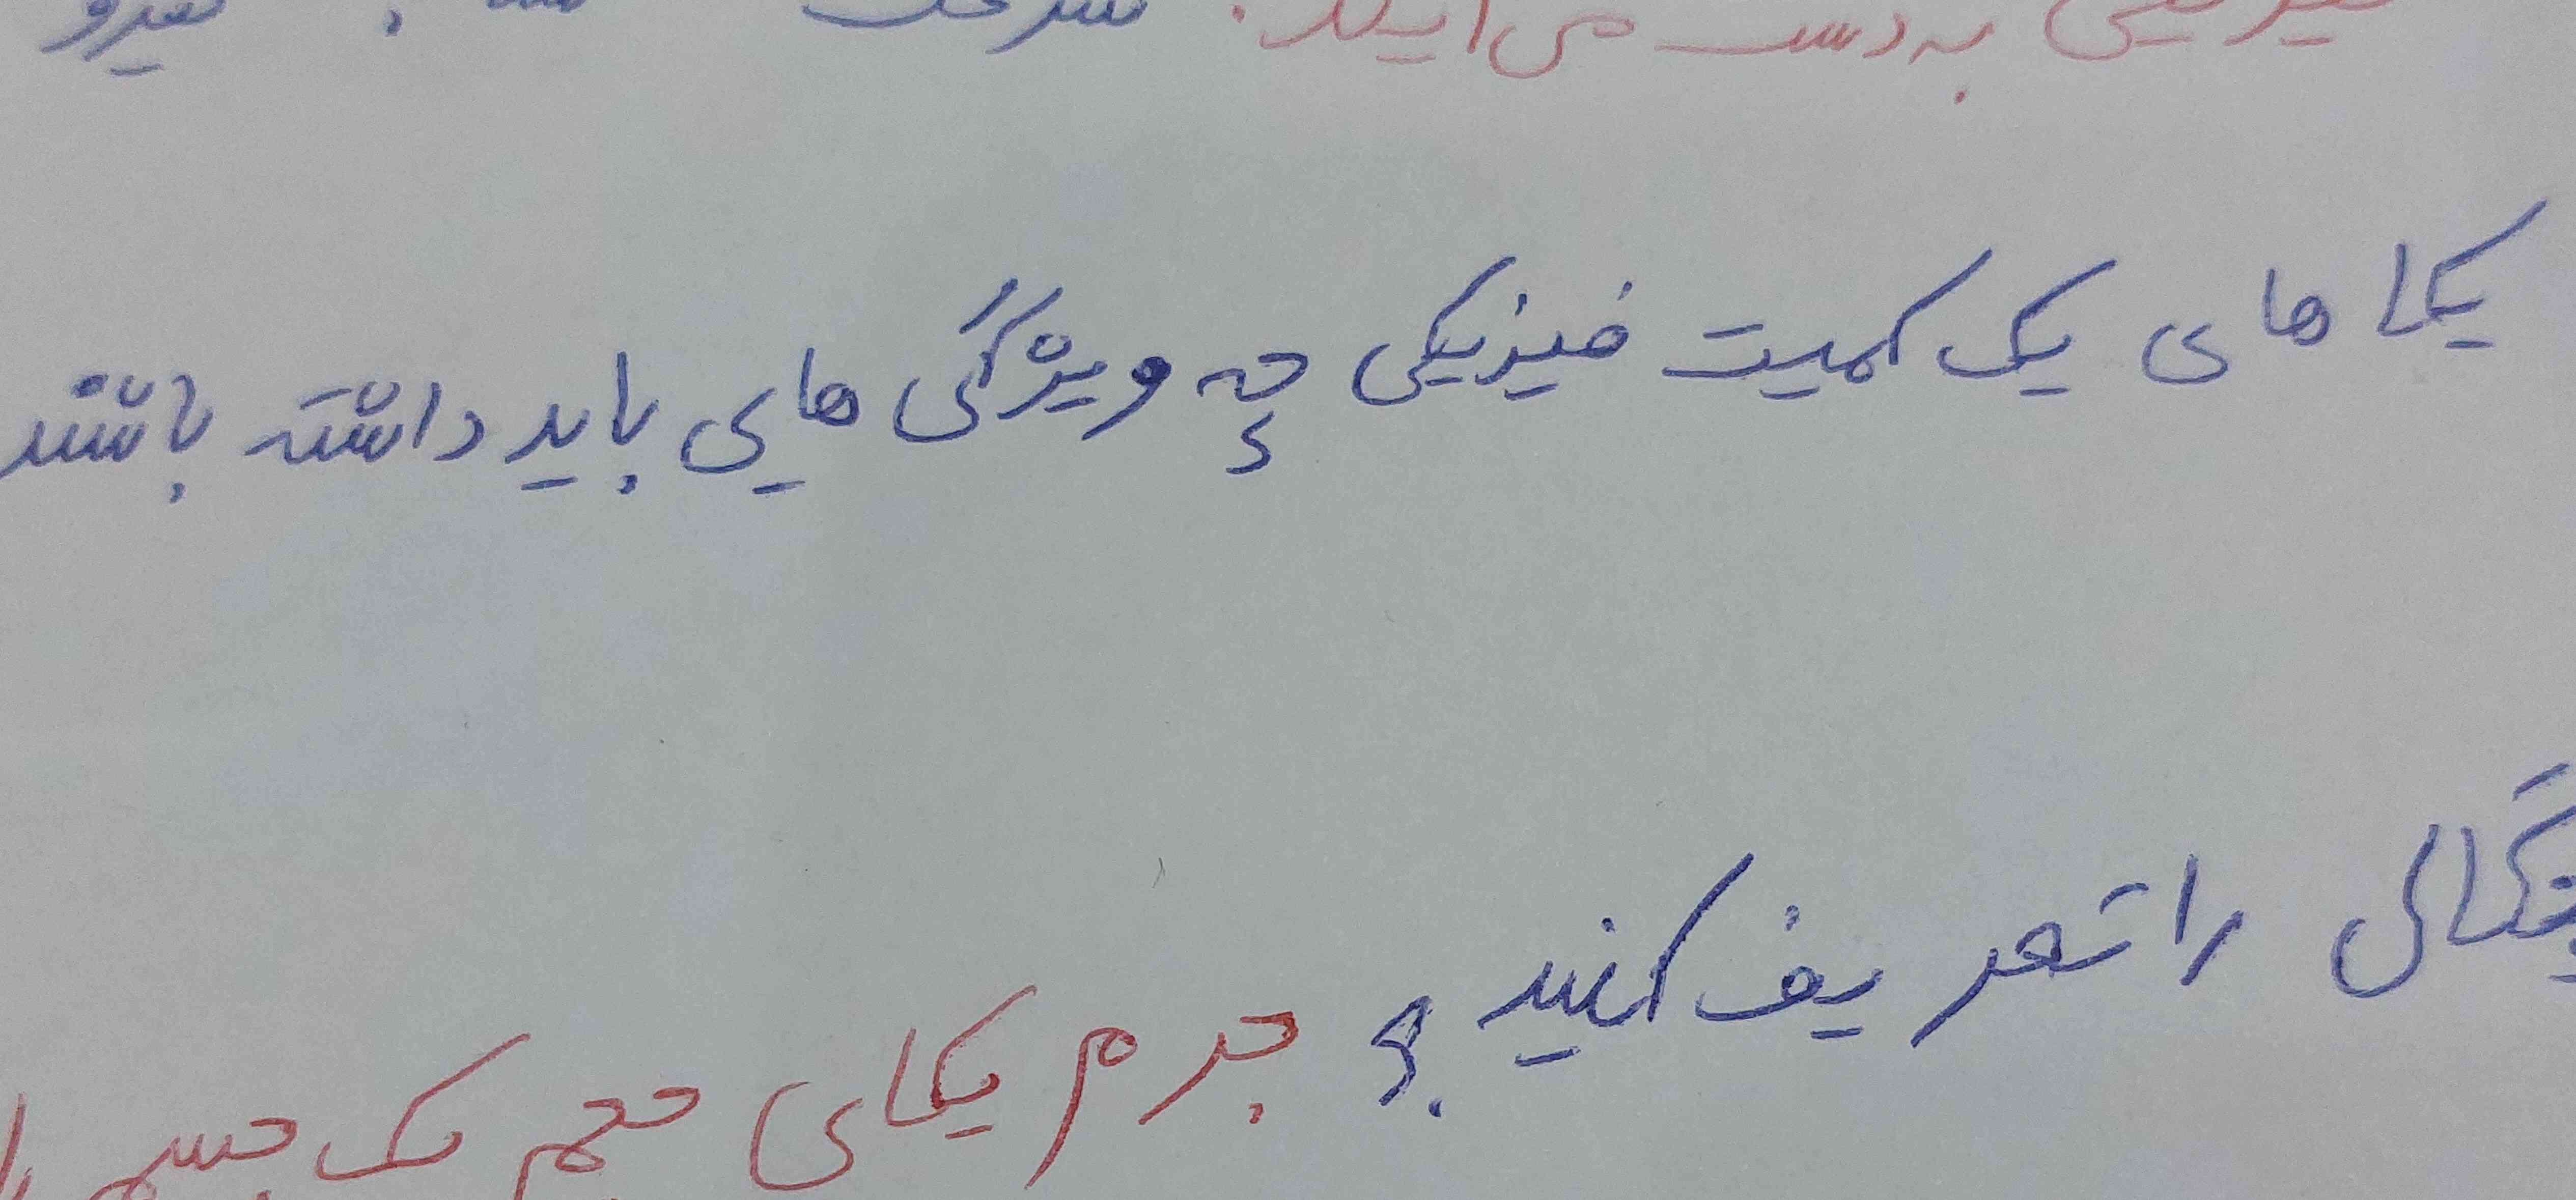 به دست می آیند. سرعت نیرو
یکا های یک کمیت فیزیکی چه ویژگی هایی باید داشته باشند
چگالی را تعریف کنید؟ جرم یکای حجم یک جسم را